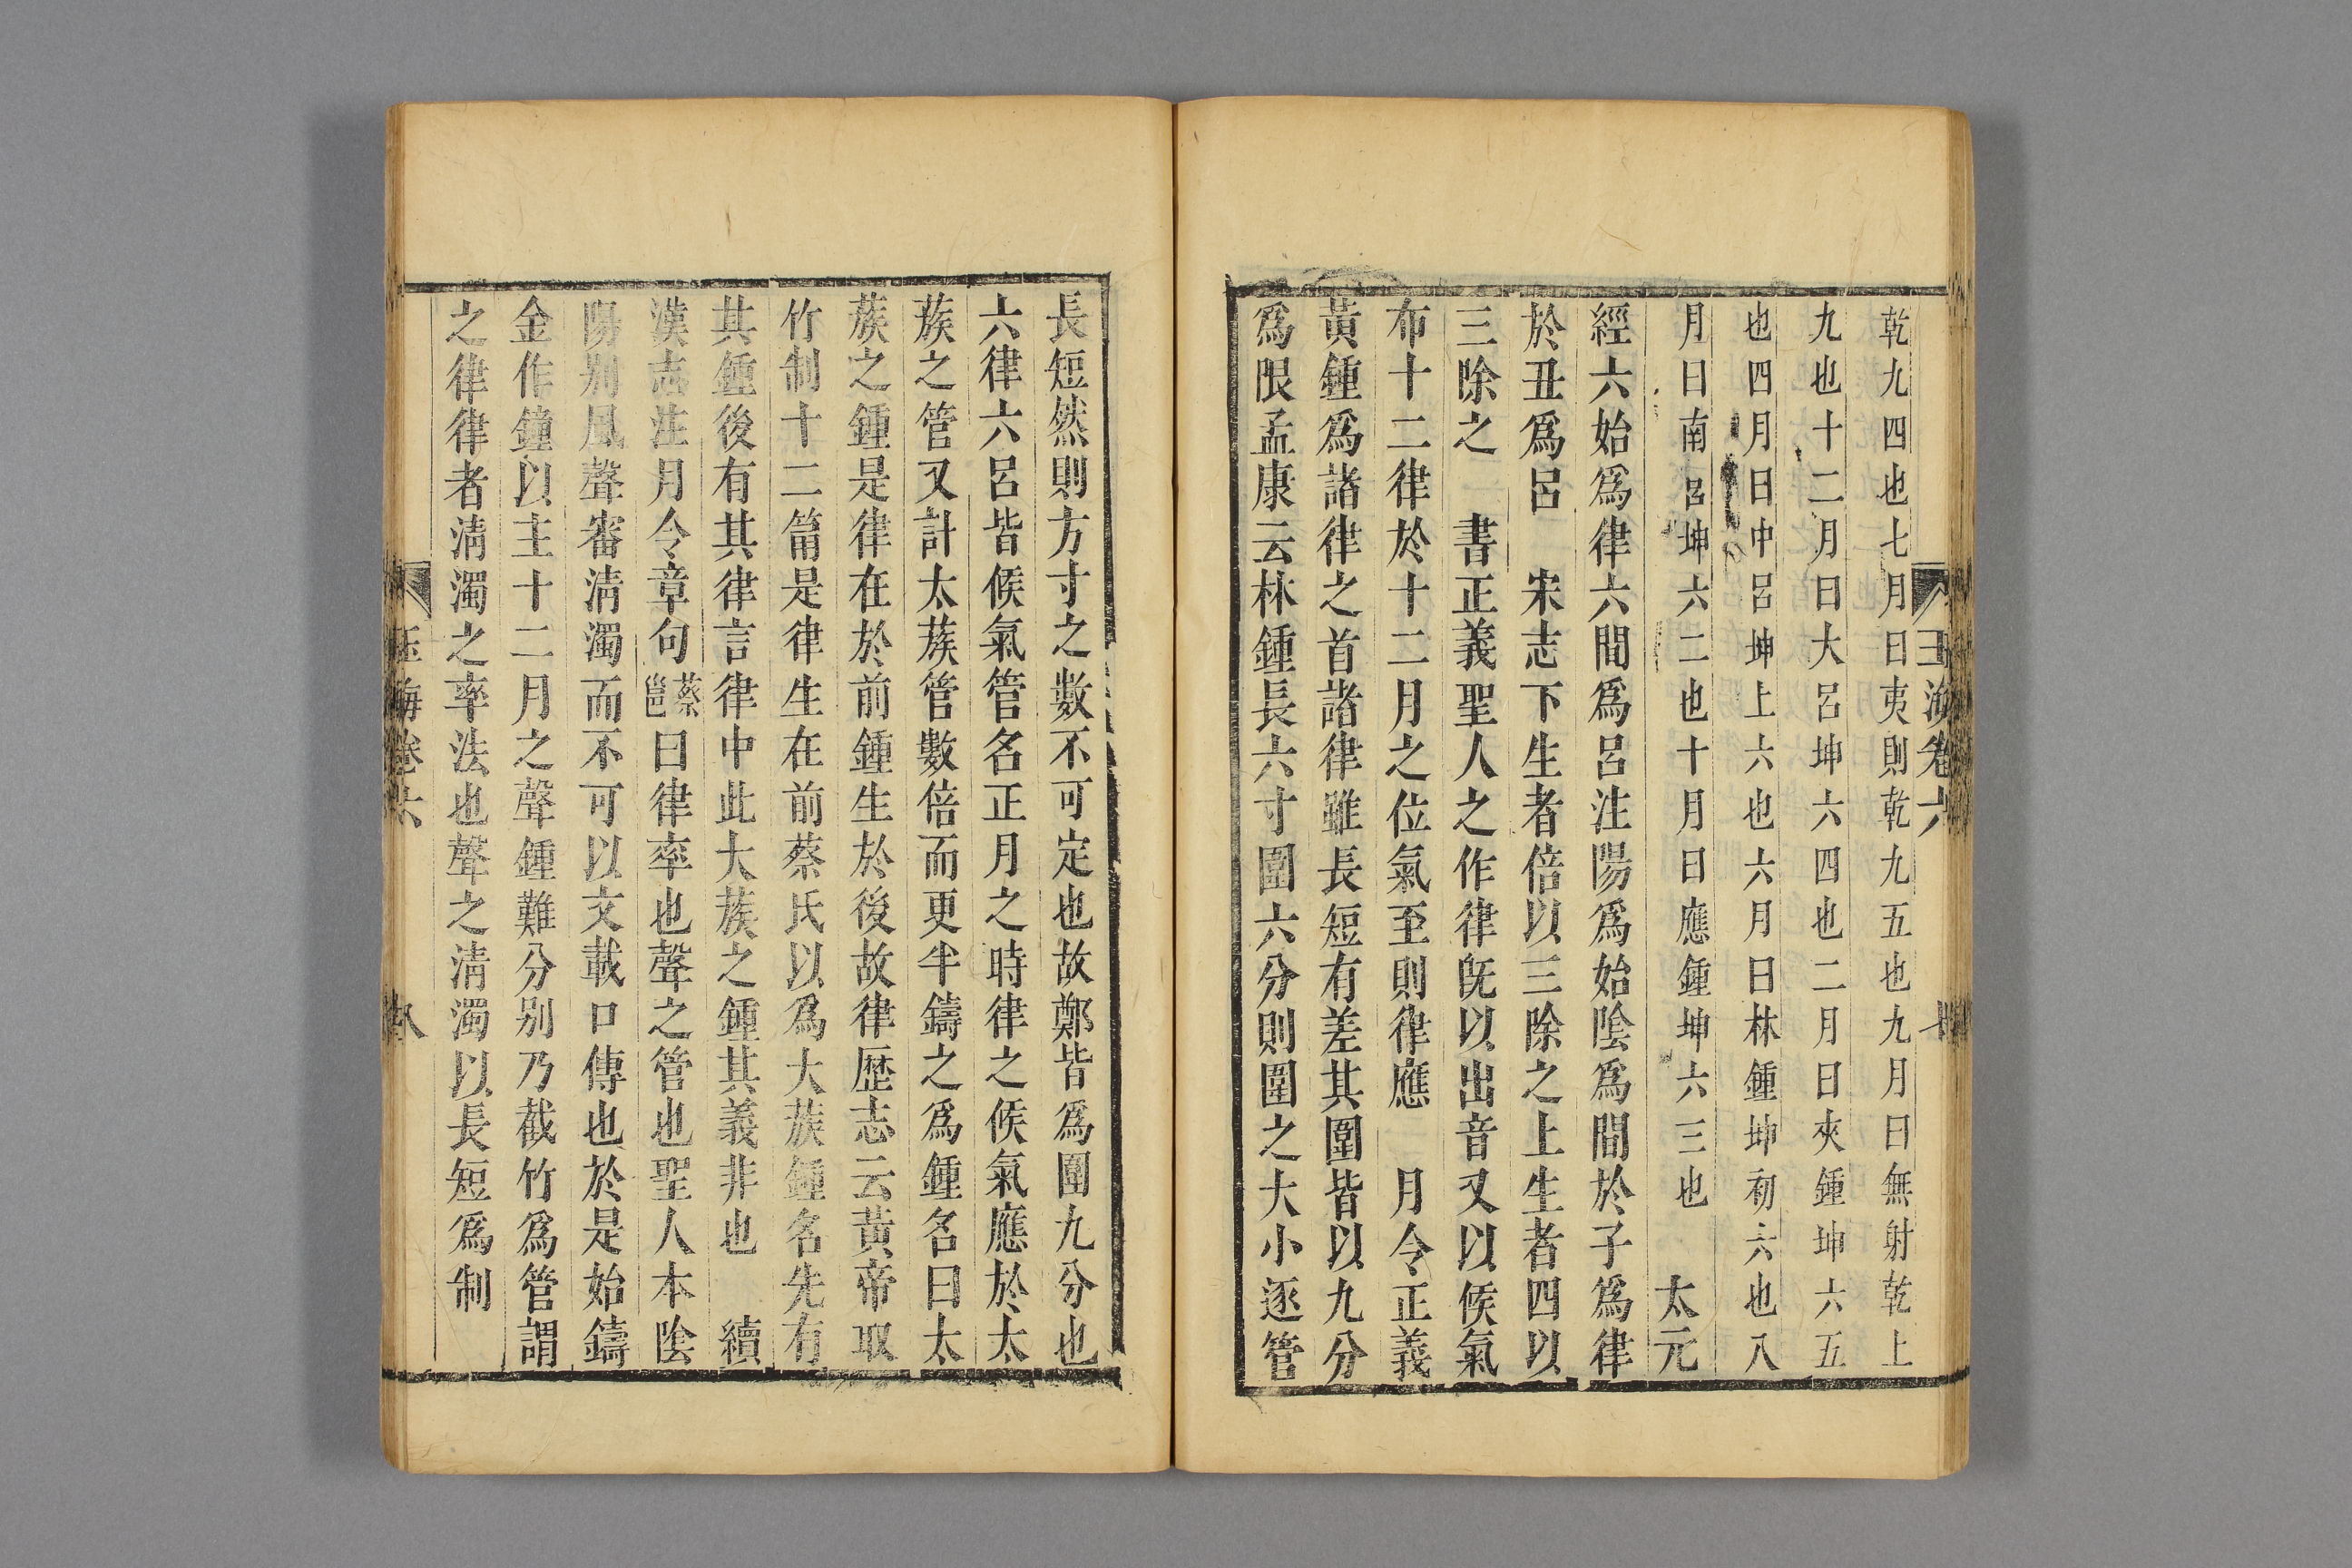 玉海卷六 七
乾九四也七月曰夷則乾九五也九月曰無射乾上
九也十二月曰大呂坤六四也二月曰夾鍾坤六五
也四月曰中呂坤上六也六月曰林鍾坤初六也八
月曰南呂坤六二也十月曰應鍾坤六三也 太元
經六始爲律六間爲呂注陽爲始陰爲間於子爲律
於丑爲呂 宋志下生者倍以三除之上生者四以
三除之 書正義聖人之作律旣以出音又以候氣
布十二律於十二月之位氣至則律應 月令正義
黃鍾爲諸律之首諸律雖長短有差其圍皆以九分
爲限孟康云林鍾長六寸圍六分則圍之大小逐管
長短然則方寸之數不可定也故鄭皆爲圍九分也
六律六呂皆候氣管名正月之時律之候氣應於太
蔟之管又計太蔟管數倍而更半鑄之爲鍾名曰太
蔟之鍾是律在於前鍾生於後故律歷志云黃帝取
竹制十二筩是律生在前蔡氏以爲大蔟鍾名先有
其鍾後有其律言律中此大蔟之鍾其義非也 續
漢志注月令章句蔡邕曰律率也聲之管也聖人本陰
陽別風聲審淸濁而不可以文載口傳也於是始鑄
金作鐘以主十二月之聲鍾難分別乃截竹爲管謂
之律律者淸濁之率法也聲之淸濁以長短爲制
玉海卷六 八